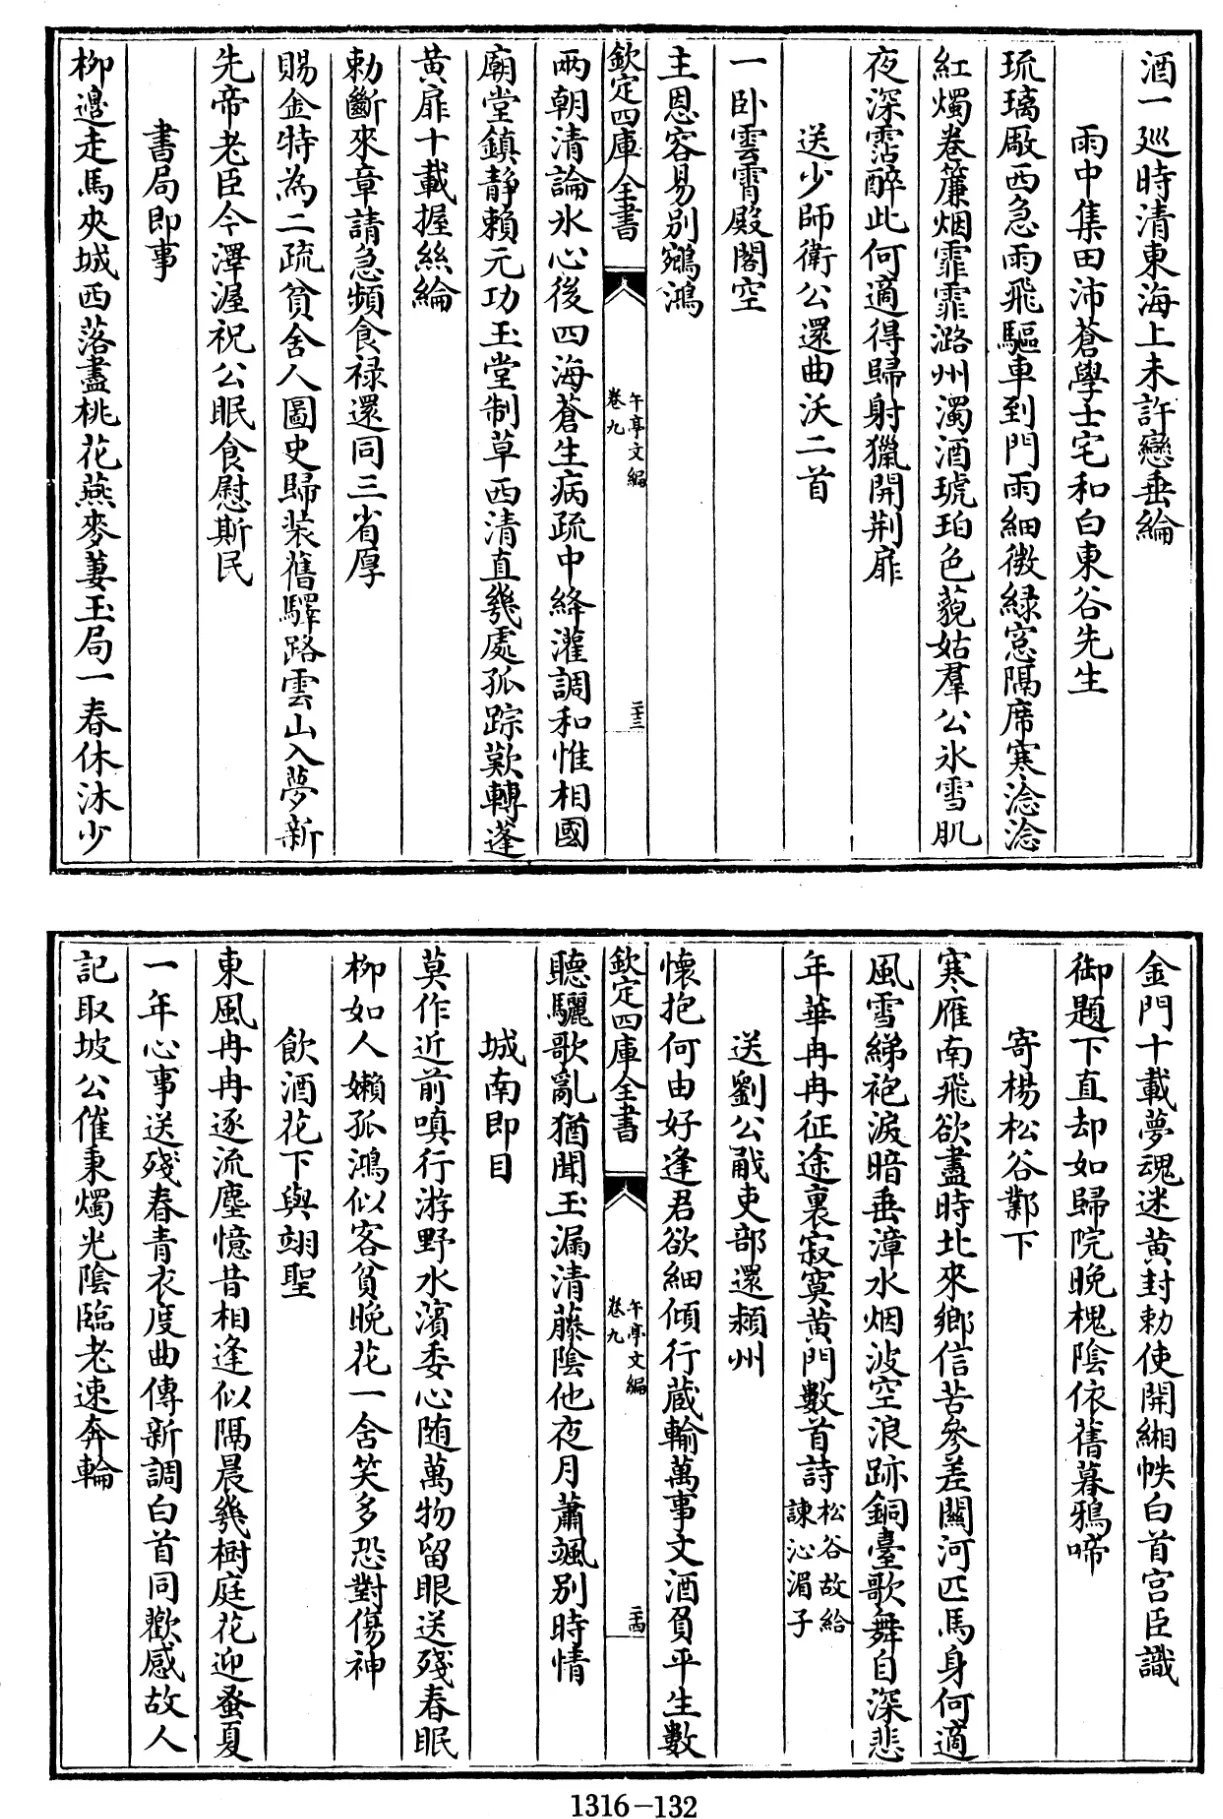 酒一巡時清東海上未許戀垂綸
雨中集田沛蒼學士宅和白東谷先生
琉璃厰西急雨飛驅車到門雨細微緑窓隔席寒淰淰
紅燭卷簾烟霏霏潞州濁酒琥珀色藐姑羣公氷雪肌
夜深霑醉此何適得歸射獵開荆扉
送少師衛公還曲沃二首
一卧雲霄殿閣空
主恩容易别鵷鴻
欽定四庫全書
午亭文編
卷九
二十三
兩朝清論氷心後四海蒼生病疏中絳灌調和惟相國
廟堂鎮靜賴元功玉堂制草西清直幾處孤踪歎轉蓬
黄扉十載握絲綸
勅斷來章請急頻食禄還同三省厚
賜金特為二疏貧舍人圖史歸装舊驛路雲山入夢新
先帝老臣今澤渥祝公眠食慰斯民
書局即事
柳邉走馬夾城西落盡桃花燕麥萋玉局一春休沐少
金門十載夢魂迷黄封勅使開緗帙白首宫臣識
御題下直却如歸院晚槐陰依舊暮鴉啼
寄楊松谷鄴下
寒雁南飛欲盡時北來鄉信苦參差關河匹馬身何適
風雪綈袍淚暗垂漳水烟波空浪跡銅臺歌舞自深悲
年華冉冉征途裏寂寞黄門數首詩
松谷故給
諫沁湄子
送劉公㦷吏部還潁州
懷抱何由好逢君欲細傾行蔵輸萬事文酒負平生數
欽定四庫全書
午亭文編
卷九
二十四
聽驪歌亂猶聞玉漏清藤陰他夜月蕭颯别時情
城南即目
莫作近前嗔行游野水濱委心随萬物留眼送殘春眠
柳如人嬾孤鴻似客貧晚花一舍笑多恐對傷神
飲酒花下與翊聖
東風冉冉逐流塵憶昔相逢似隔晨幾樹庭花迎蚤夏
一年心事送殘春青衣度曲傳新調白首同歡感故人
記取坡公催秉燭光陰臨老速奔輪
1316-132